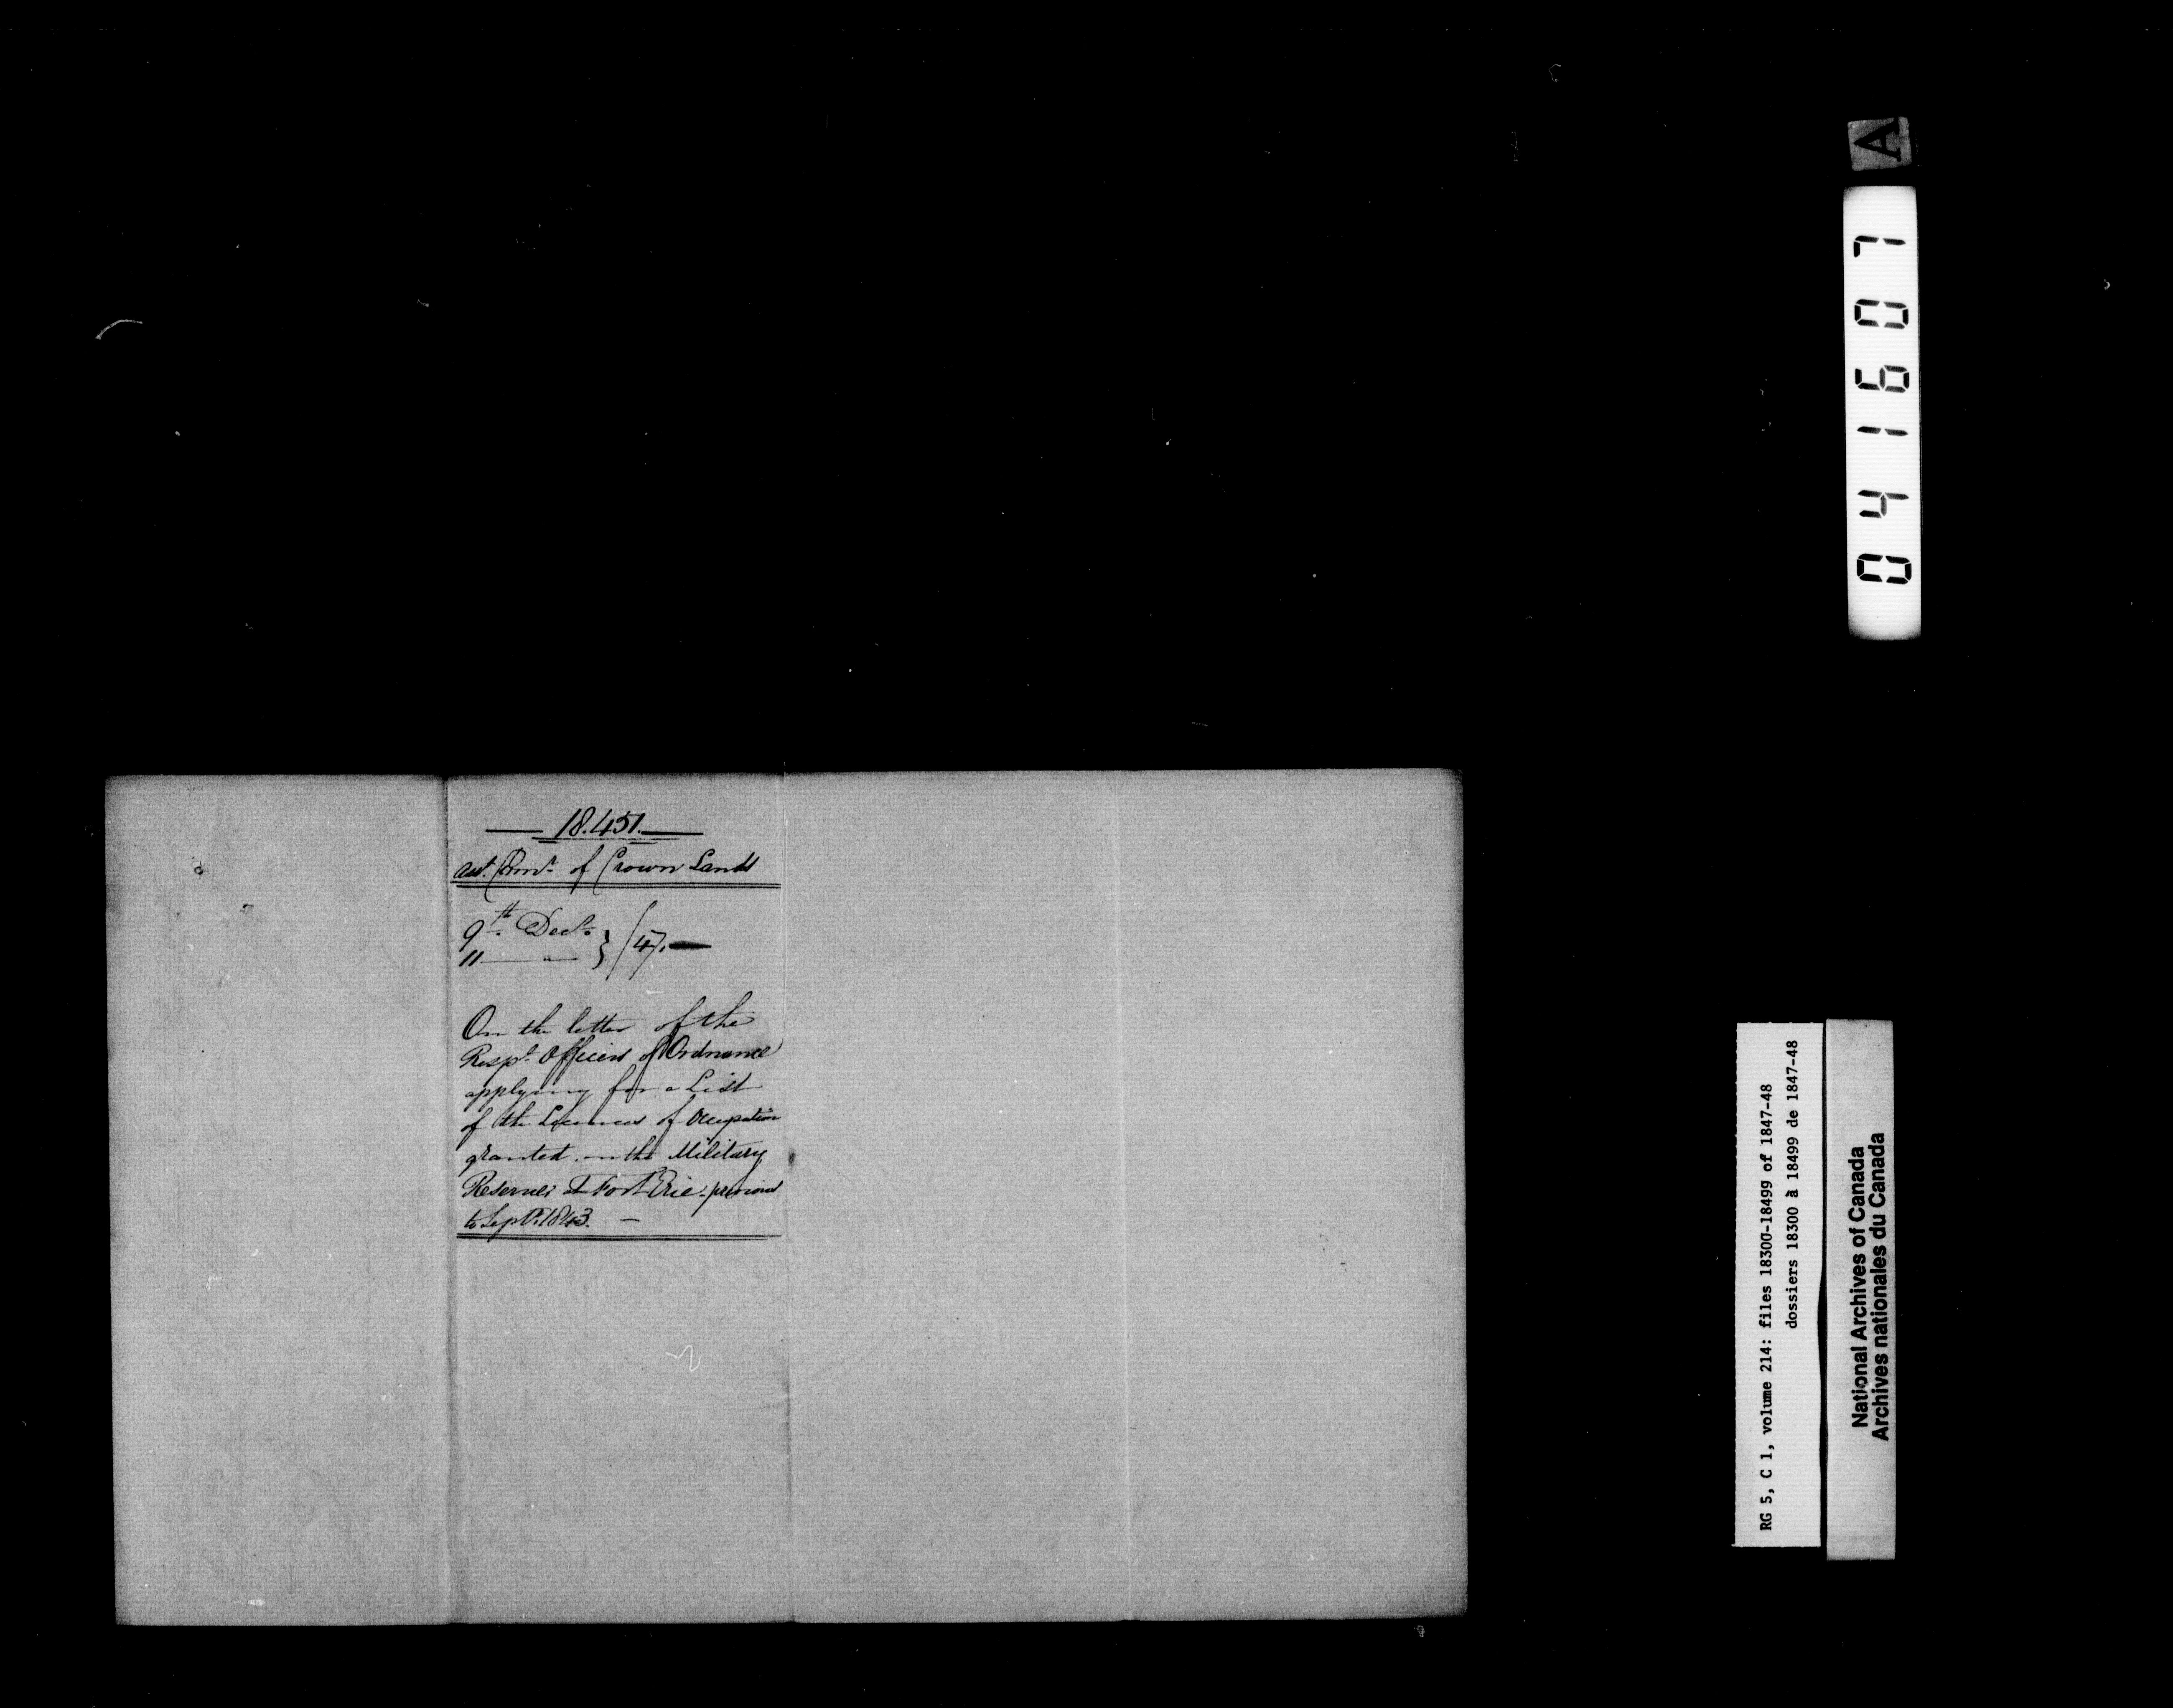 18.451.
Asst. Comr. of Crown Lands
9th. Decr. } /47.
11 — " — }
On the letter of the
Respe. Officers of Ordnance
applying for a List
of the Licences of Occupation
granted on the Military
Reserves at Fort Erie previous
to Septr. 1843. —
A
041607
RG 5, C 1, volume 214: files 18300-18499 of 1847-48
dossiers 18300 à 18499 de 1847-48
National Archives of Canada
Archives nationales du Canada